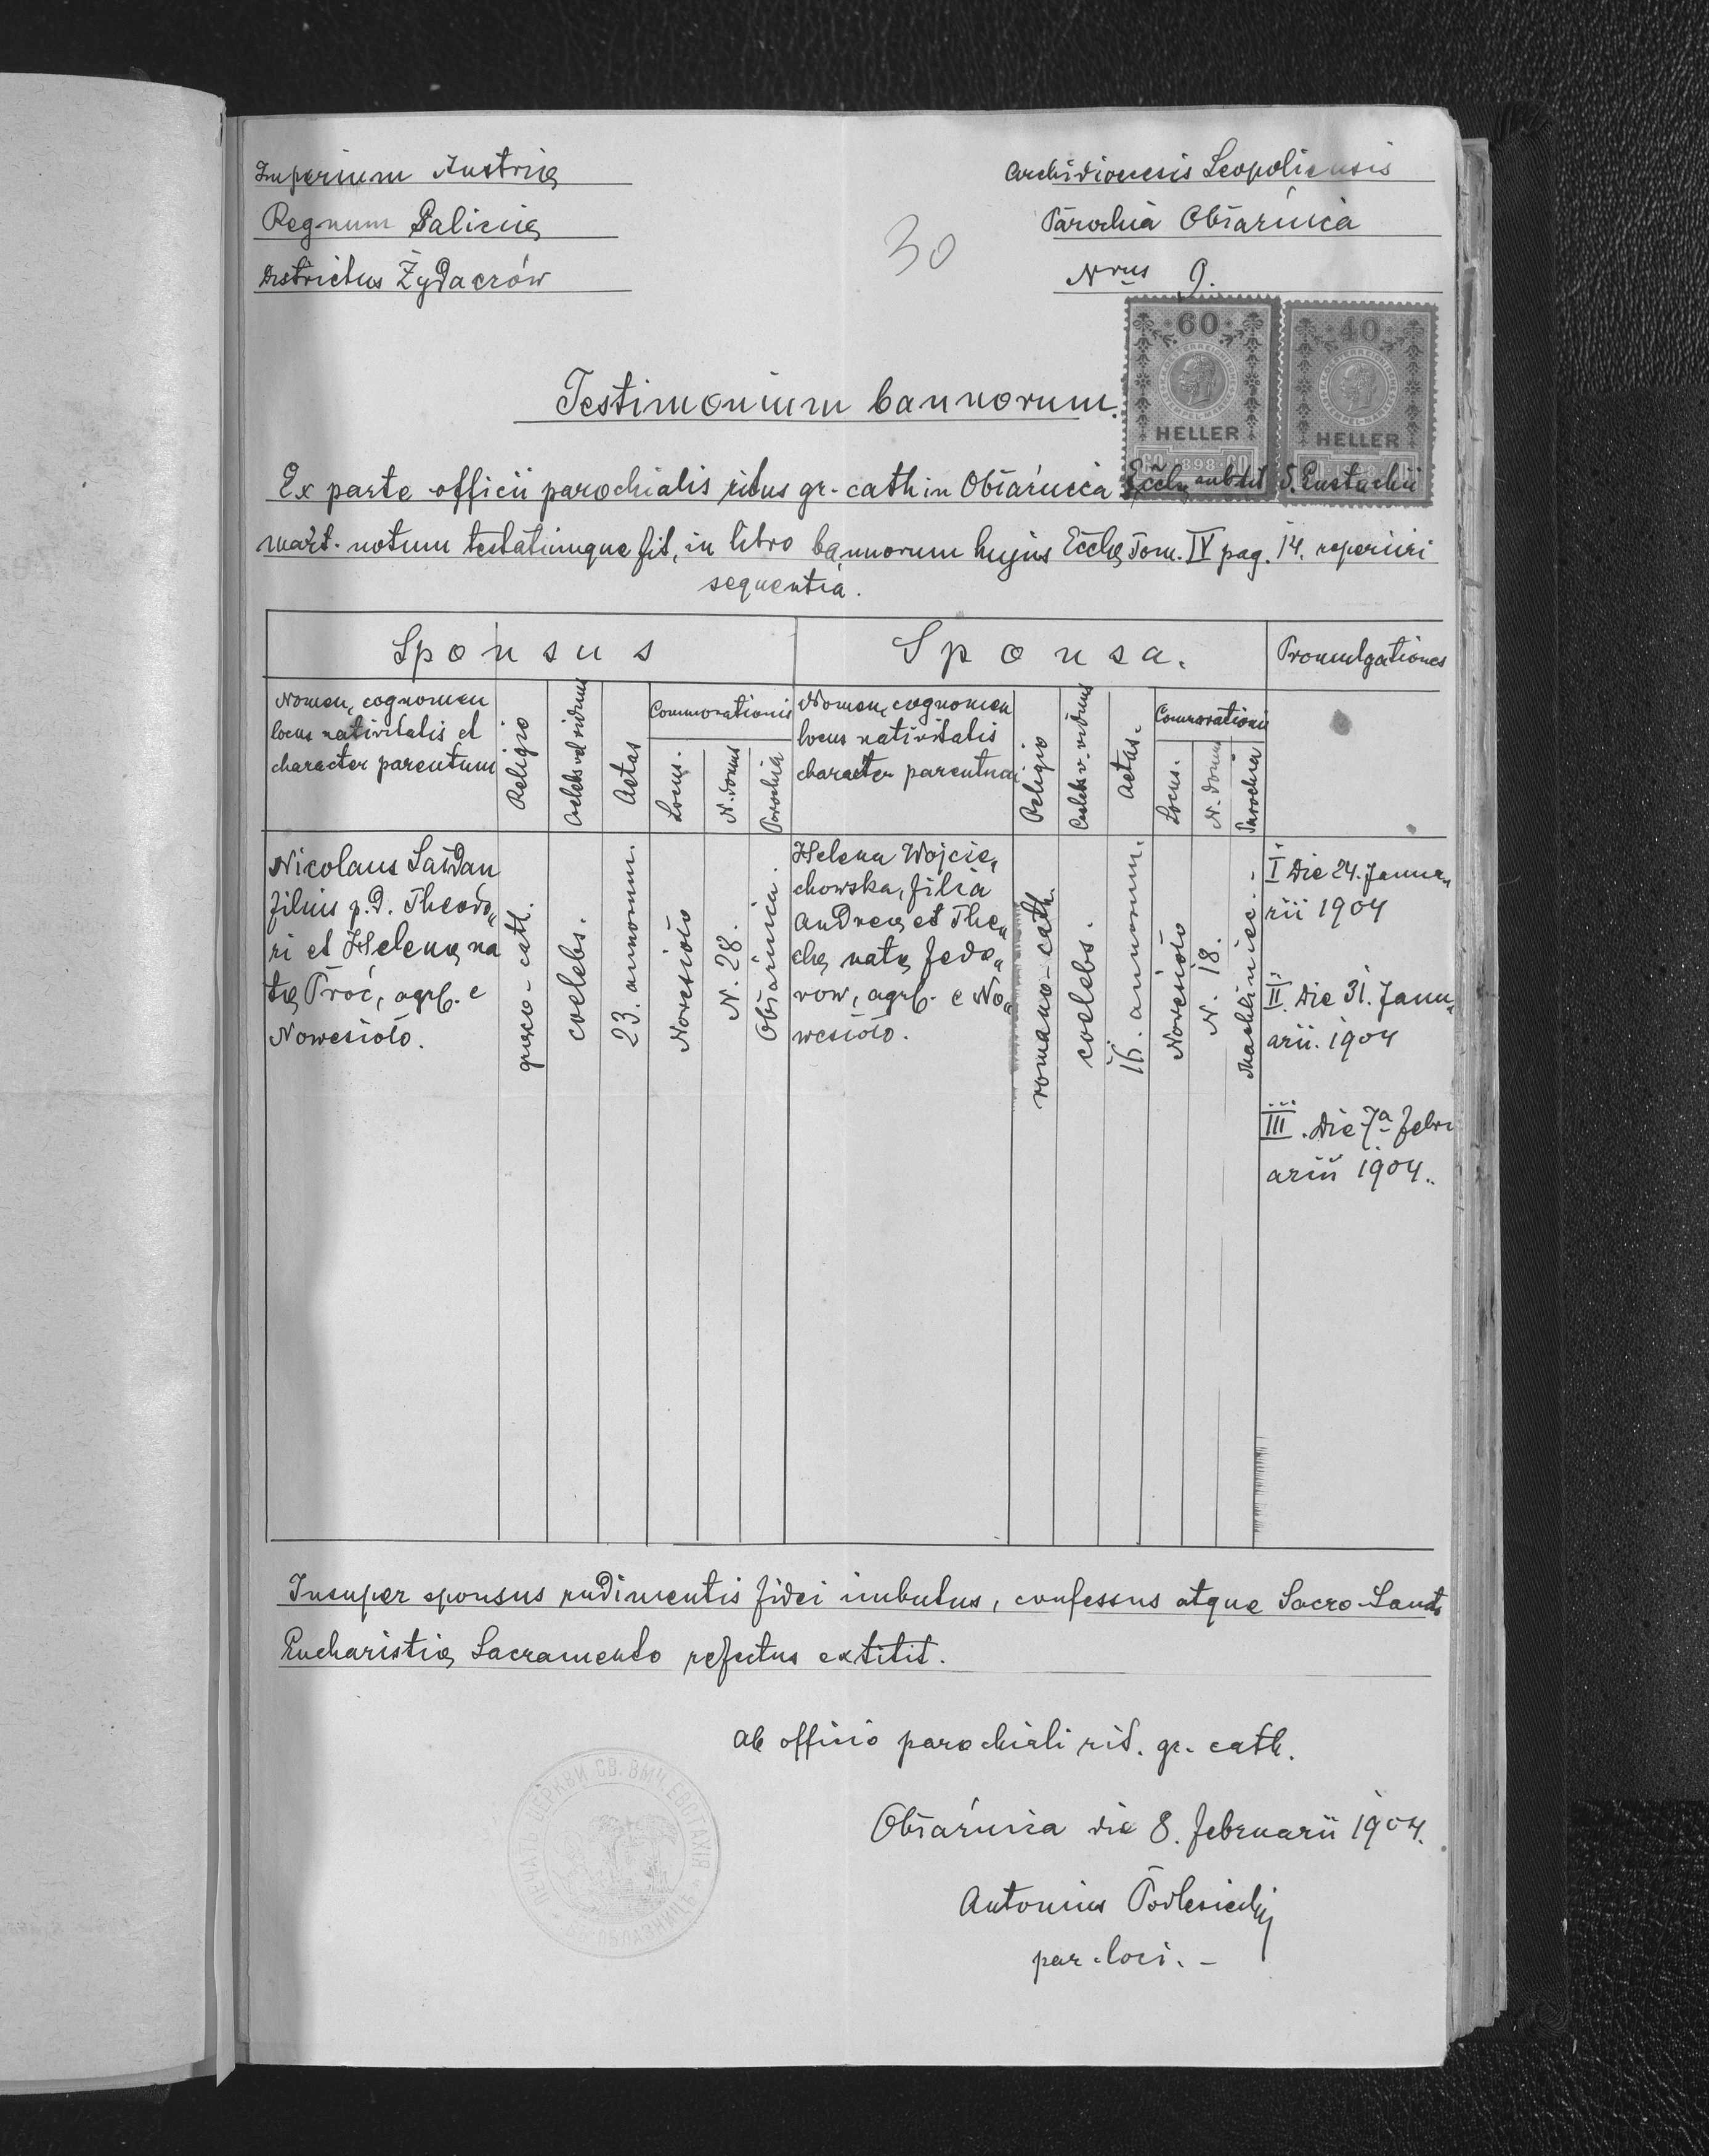 Imperium Austriæ
Regnum Galiciæ
Districtus Żydaczów
Archidioecesis Leopoliensis
Parochia Obłaźnica
Nrus 9.
30
60
HELLER
60 1898 60
40
HELLER
Testimonium bannorum.
Ex parte officii parochialis ritus gr. cath in Obłaźnica Eccl. sub tit S. Eustachii
mart. notum testatumque fit, in libro bannorum hujus Eccl. Tom. IV pag. 14. reperiri
sequentia.
Sponsus
Sponsa.
Promulgationes
Nomen, cognomen
locus nativitatis et
character parentum
Religio
Coelebs vel viduus
Aetas
Commorationis
Locus.
N. domus
Parochia
Nomen, cognomen
locus nativitatis
character parentum
Religio
Coelebs v. viduus
Aetas.
Commorationis
Locus.
N. domus
Parochia
Nicolaus
filius p. d. Theodo„
ri et Helenæ na
tæ Proć, agrl. e
Nowesioło.
græco-cath.
coelebs.
23. annorum.
Novesioło
N. 28.
Obłaźnica.
Helena Wojcie„
chowska, filia
Andreæ et The„
clæ natæ Fedo„
row, agrl. e No„
wesioło.
romano-cath.
coelebs.
16. annorum.
Novesioło
N. 18.
Machliniec.-
I Die 24. Janua„
rii 1904
II. Die 31. Janu„
arii. 1904
III. Die 7a Febru
arii 1904.
Insuper sponsus rudimentis fidei imbutus, confessus atque Sacro-Sancto
Eucharistiæ Sacramento refectus extitit.
Ab officio parochiali rit. gr. cath.
Obłaźnica die 8. Februarii 1904.
Antonius
par. loci. -
ПЕЧАТЬ ЦЕРКВИ СВ. ВМЧ. ЕВСТАХІЯ ВЪ ОБЛАЗНИЦѢ